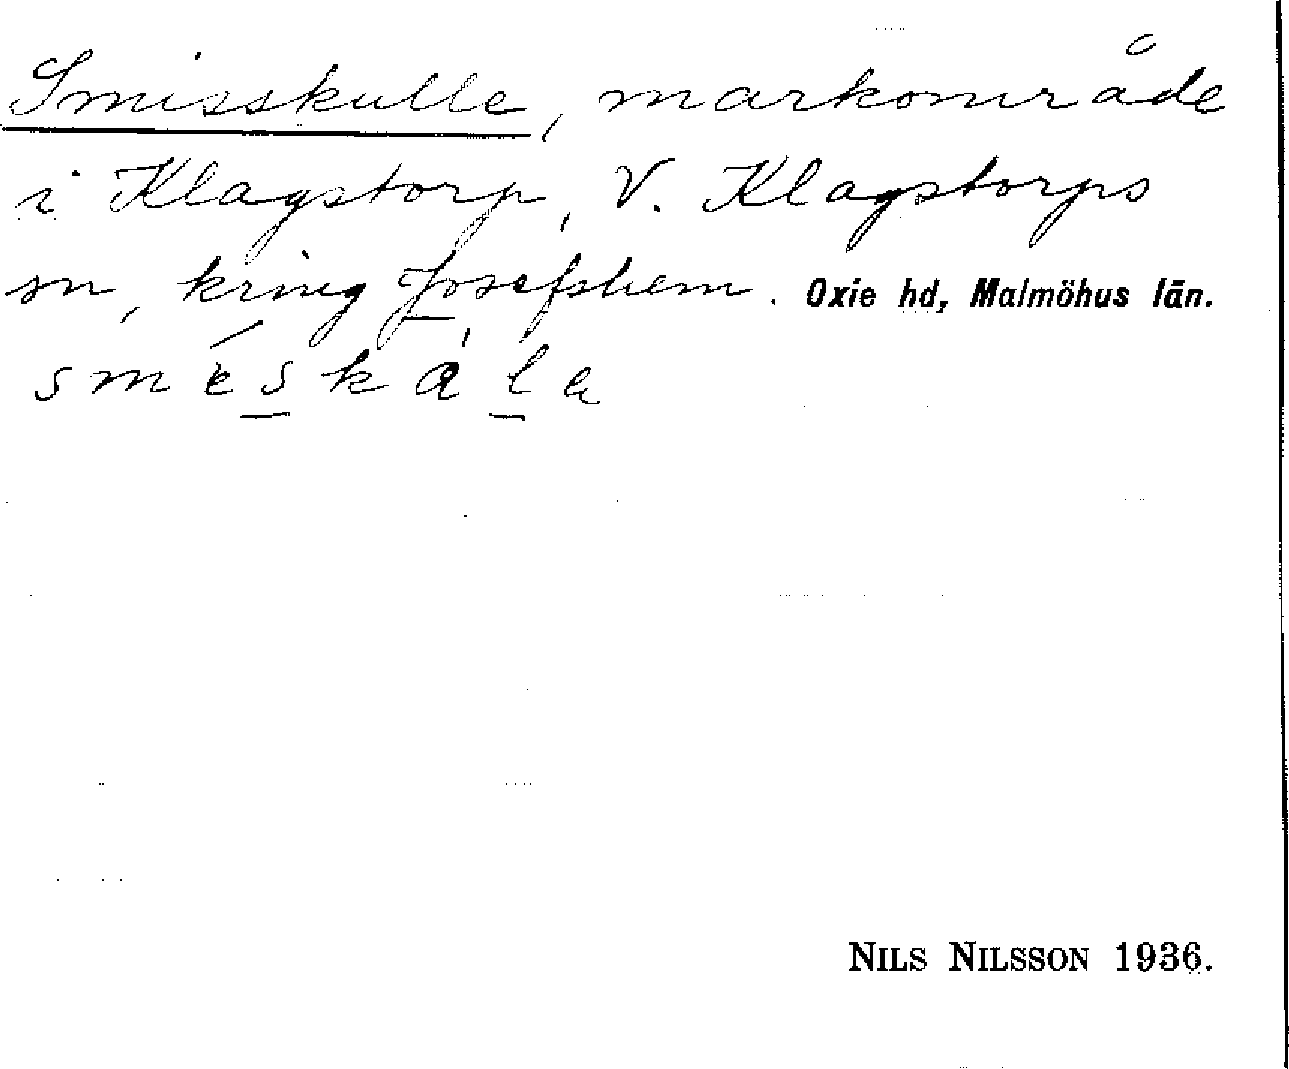 Smisskulle, markområde
i Klagstorp, V. Klagstorps
sn, kring Josefshem. Oxie hd, Malmöhus län.
sméskála
NILS NILSSON 1936.